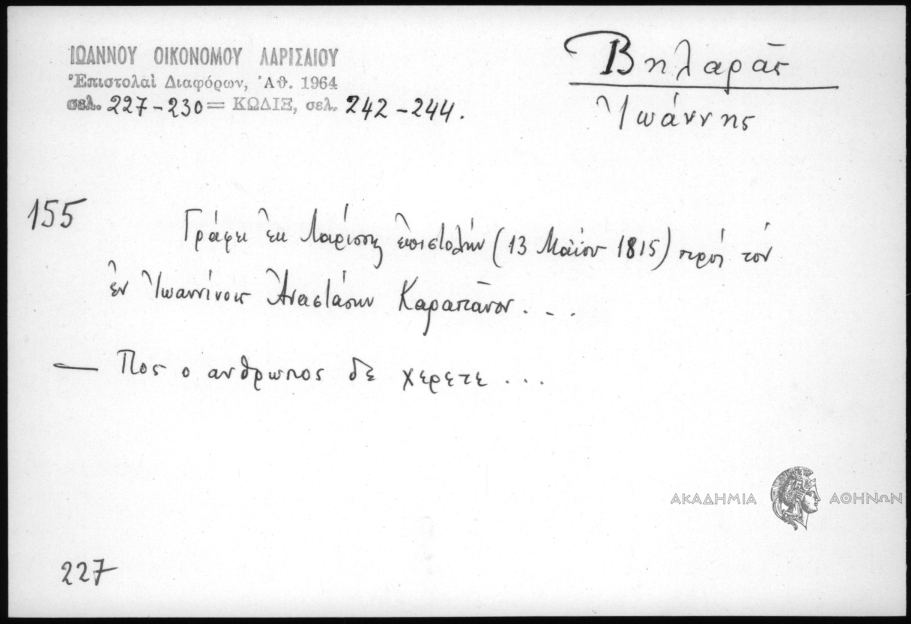 ΙΩΑΝΝΟΥ ΟΙΚΟΝΟΜΟΥ ΛΑΡΙΣΑΙΟΥ
Ἐπιστολαὶ Διαφόρων, Ἀθ. 1964
σελ. 227-230 = ΚΩΔΙΞ, σελ. 242-244.
Βηλαρᾶς
Ἰωάννης
155
Γράφει ἐκ Λαρίσης ἐπιστολήν (13 Μαΐου 1815) πρός τόν
ἐν Ἰωαννίνοις Ἀναστάσην Καραπάνον...
— Πος ο ανθρωπος δε χερετε...
ΑΚΑΔΗΜΙΑ ΑΘΗΝΩΝ
227